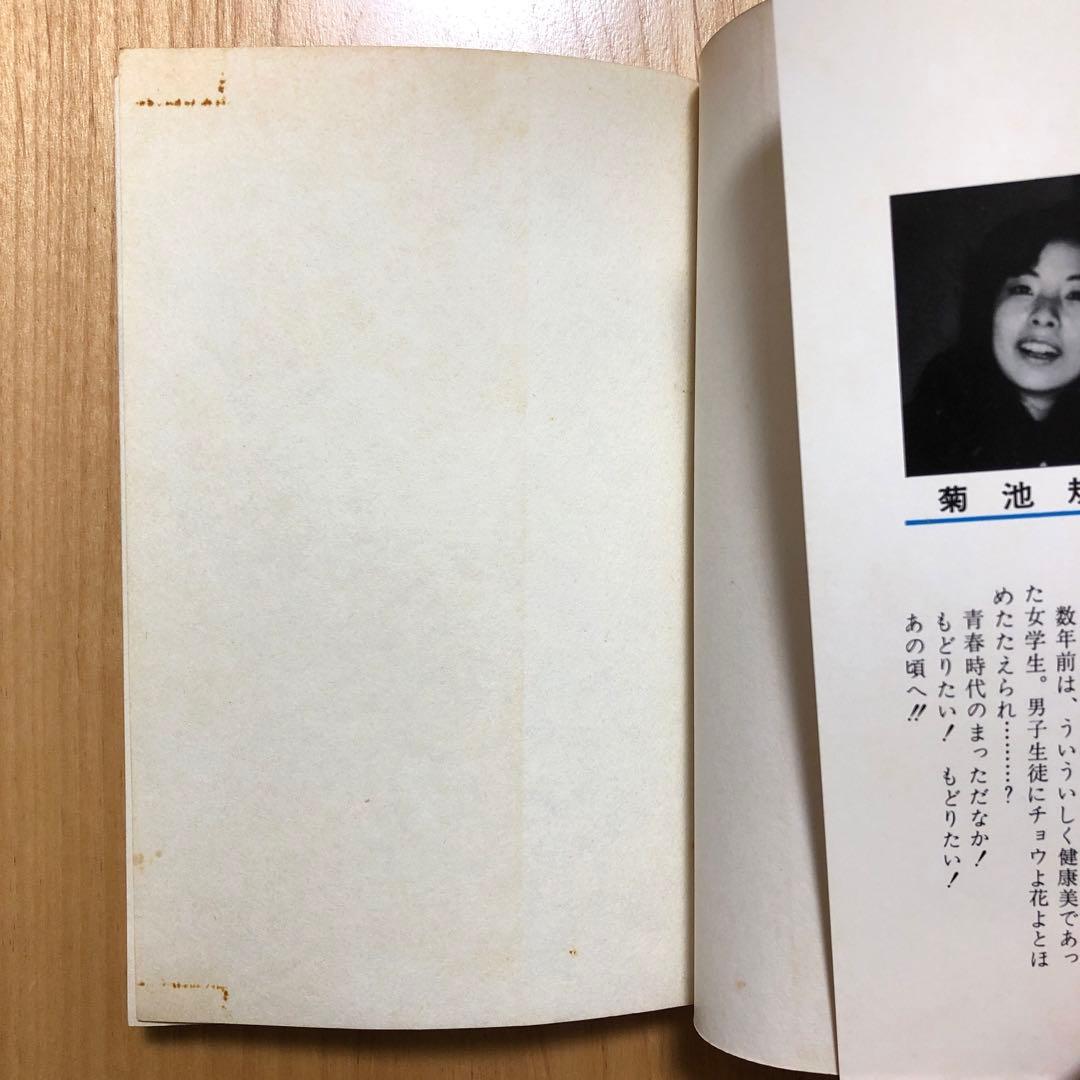 菊池
数年前は、ういういしく健康美であっ
た女学生。男子生徒にチョウよ花よとほ
めたたえられ………?
青春時代のまっただなか!
もどりたい! もどりたい!
あの頃へ!!